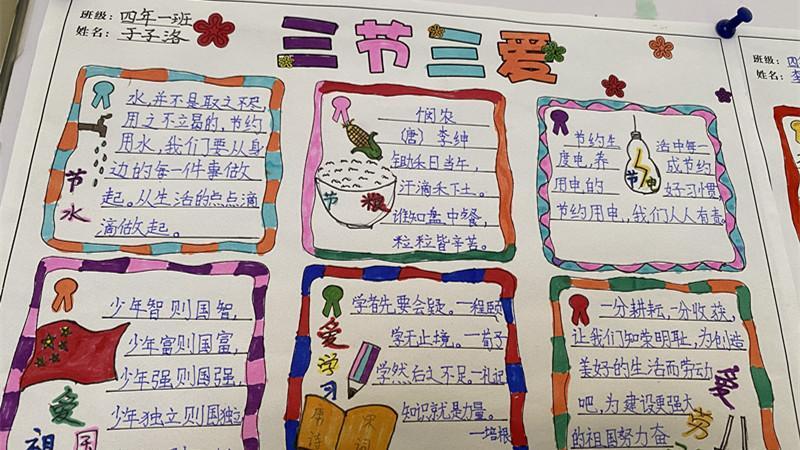 班级：四年一班
姓名：于子洛
三节三爱
水，并不是取之不尽
用之不立愚的，节约
用水，我们要从身
边的每一件事做
起。从生活的点点滴
滴做起。
节水
悯农
（唐）李绅
锄禾日当午，
汗滴禾下土。
谁知盘中餐，
粒粒皆辛苦。
节粮
节约生活中每一
度电，养成节约
用电的好习惯，
节约用申，我们人人有责。
节申
少年智则国智，
少年富则国富，
少年强则国强，
少年独立则国独立，
爱祖国
学者先要会疑。一程颐
学无止境。一荀子
学然后之不足。一礼记
知识就是力量。
一培根
爱学习
唐诗
宋词
一分耕耘，一分收获，
让我们知荣明耻，为创造
美好的生活而劳动
吧，为建设更强大
的祖国努力奋
爱劳
班级：四
姓名：